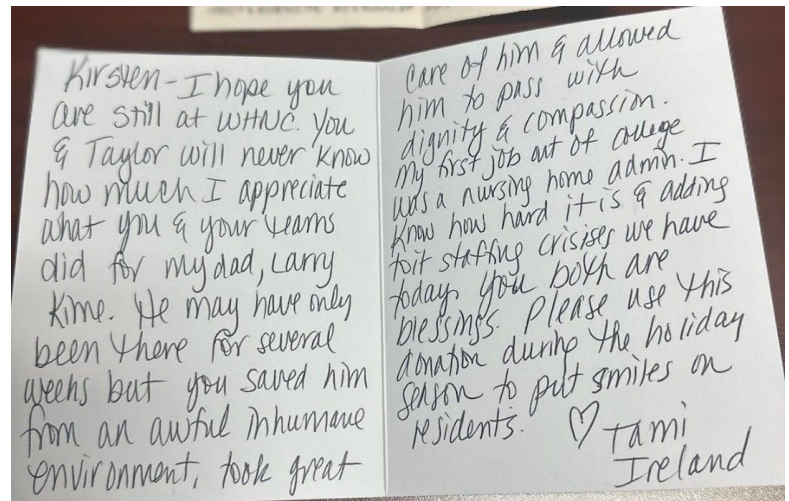 Kirsten - I hope you
are still at WHNC. You
& Taylor will never know
how much I appreciate
what you & your teams
did for my dad, Larry
Kime. He may have only
been there for several
weeks but you saved him
from an awful inhumane
environment, took great
care of him & allowed
him to pass with
dignity & compassion.
My first job out of college
was a nursing home admin. I
know how hard it is & adding
to it staffing crisises we have
today. You both are
blessings. Please use this
donation during the holiday
season to put smiles on
residents. ♡ Tami
Ireland